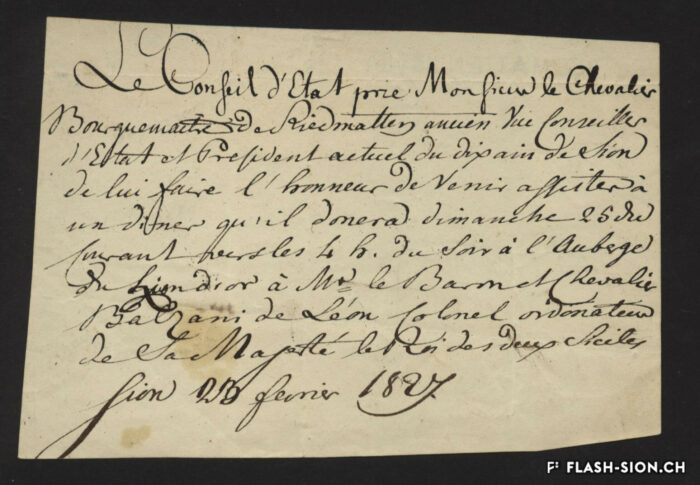 Le Conseil d'Etat prie Monsieur le Chevalier
Bourguemaitre de Riedmatten ancien Vice Conseiller
d'Etat et Président actuel du dixain de Sion
de lui faire l'honneur de Venir assister à
un diner qu'il donera dimanche 25 du
Courant vers les 4 h. du Soir à l'Auberge
du Lion d'or à Mr le Baron et Chevalier
Balzani de Léon Colonel ordonateur
de Sa Majesté le Roi des deux Siciles
Sion fevrier 1827.
F: FLASH-SION.CH